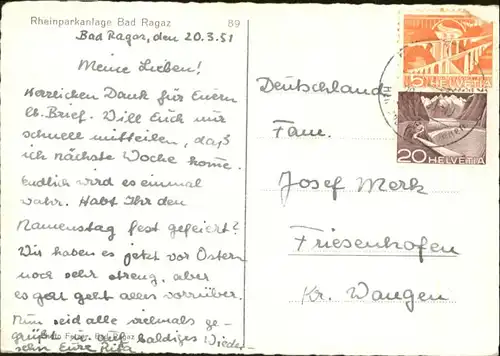 Rheinparkanlage Bad Ragaz 89
Bad Ragaz, den 20.3.51
Meine Lieben!
Herzlichen Dank für Euern
lb. Brief. Will Euch nur
schnell mitteilen, daß
ich nächste Woche kome.
Endlich wird es einmal
wahr. Habt Ihr den
Namenstag fest gefeiert?
Wir haben es jetzt vor Ostern
noch sehr streng, aber
es geht alles vorrüber.
Nun seid alle vielmals ge-
grüßt auf baldiges Wieder-
sehn Eure Rita
Deutschland
Fam.
Josef Merk
Friesenhofen
Kr. Wangen
5 HELVETIA
20 HELVETIA